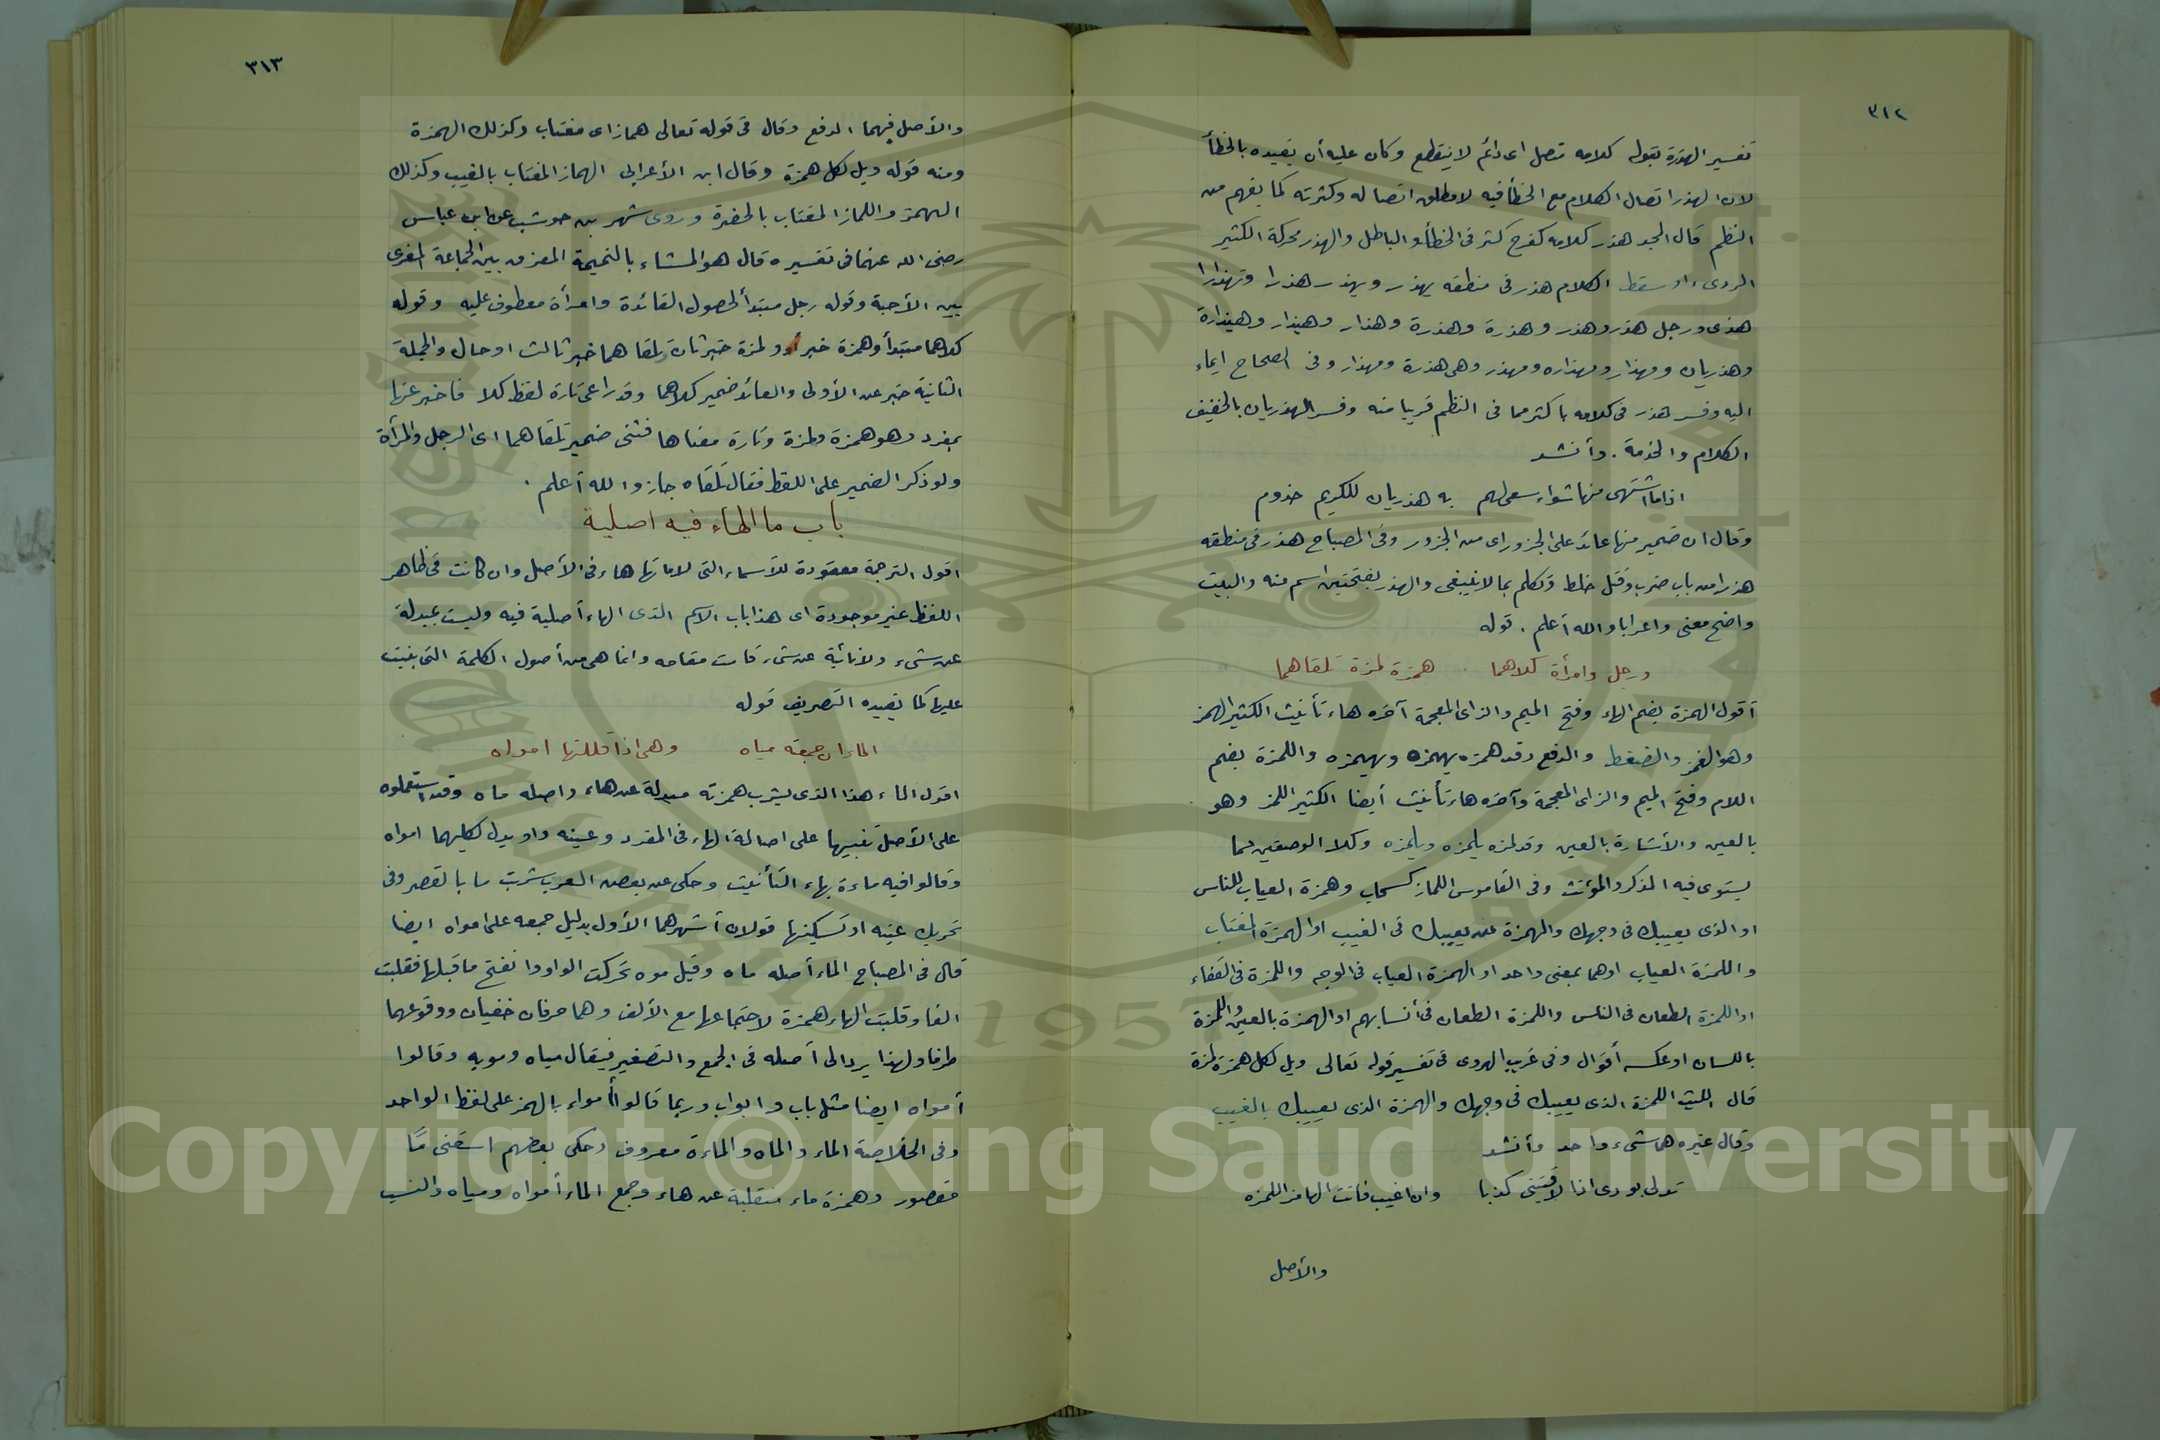 ٣١٢
تفسير الهذرة بقوله كلامه متصل اى دائم لا ينقطع وكان عليه أن يقيده بالخطأ
لان الهذر اتصال الكلام مع الخطأ فيه لا مطلق اتصاله وكثرته كما يفهم من
النظم قال المجد هذر كلامه كفرح كثر فى الخطأ والباطل والهذر محركة الكثير
الردىء او سقط الكلام هذر فى منطقه يهذر ويهذر هذرا وتهذارا
هذى ورجل هذر وهذر وهذرة وهذرة وهذار وهيذار وهيذارة
وهذريان ومهذار ومهذاره ومهذر وهى هذرة ومهذار وفى الصحاح ايماء
اليه وفسر هذر فى كلامه باكثر مما فى النظم قريبا منه وفسر الهذريان بالخفيف
الكلام والخدمة . وأنشد
اذا ما اشتهى منها شواء سعى لهم به هذريان للكريم خذوم
وقال ان ضمير منها عائد على الجزور اى من الجزور وفى المصباح هذر فى منطقه
هذرا من باب ضرب وقتل خلط وتكلم بما لا ينبغى والهذر بفتحتين اسم منه والبيت
واضح معنى واعرابا والله أعلم . قوله
ورجل وامرأة كلاهما همزة لمزة تلقاهما
أقول الهمزة بضم الهاء وفتح الميم والزاى المعجمة آخره هاء تأنيث الكثير الهمز
وهو الغمز والضغط والدفع وقد همزه يهمزه ويهمزه واللمزة بضم
اللام وفتح الميم والزاى المعجمة وآخره هاء تأنيث أيضا الكثير اللمز وهو
بالعين والأشارة بالعين وقد لمزه يلمزه ويلمزه وكلا الوصفين مما
يستوى فيه المذكر والمؤنث وفى القاموس اللماز كسحاب وهمزة العياب للناس
او الذى يعيبك فى وجهك والهمزة من يعيبك فى الغيب او الهمزة المغتاب
واللمزة العياب اوهما بمعنى واحد او الهمزة العياب فى الوجه واللمزة فى القفاء
او اللمزة الطعان فى الناس واللمزة الطعان فى أنسابهم او الهمزة بالعين واللمزة
باللسان او عكسه أقوال وفى غريب الهروى فى تفسير قوله تعالى ويل لكل همزة لمزة
قال الليث اللمزة الذى يعيبك فى وجهك والهمزة الذى يعيبك بالغيب
وقال غيره هما شىء واحد وأنشد
تدلى بودى اذا لاقيتنى كذبا وان اغيب فانت الهامز اللمزه
والأصل
٣١٣
والأصل فيهما الدفع وقال فى قوله تعالى هماز اى مغتاب وكذلك الهمزة
ومنه قوله ويل لكل همزة وقال ابن الأعرابى الهماز المغتاب بالغيب وكذلك
الهمز واللماز المغتاب بالحضرة وروى شهر بن حوشب عن ابن عباس
رضى الله عنهما فى تفسيره قال هو المشاء بالنميمة المفرق بين الجماعة المغرى
بين الأحبة وقوله رجل مبتدأ لحصول الفائدة وامرأة معطوف عليه وقوله
كلاهما مبتدأ وهمزة خبر أول ولمزة خبر ثان وتلقاهما خبر ثالث او حال والجملة
الثانية خبر عن الأولى والعائد ضمير كلاهما وقد راعى تارة لفظ كلا فاخبر عنها
بمفرد وهو همزة ولمزة وتارة معناها فثنى ضمير تلقاهما اى الرجل والمرأة
ولو ذكر الضمير على اللفظ فقال تلقاه جاز والله أعلم .
باب ما الهاء فيه اصلية
اقول الترجمة معقودة للأسماء التى لاماتها هاء فى الأصل وان كانت فى ظاهر
اللفظ غير موجودة اى هذا باب الاسم الذى الهاء أصلية فيه وليست بمبدلة
عن شىء ولا نائبة عن شىء قامت مقامه وانما هى من أصول الكلمة التى بنيت
عليها كما يفيده التصريف قوله
الماء ان جمعته مياه وهى اذا قللتها امواه
اقول الماء هذا الذى يشرب همزته مبدلة عن هاء واصله ماه وقد استعملوه
على الأصل تنبيها على اصالة الهاء فى المفرد وعينه واو يدل لكليهما امواه
وقالوا فيه ماءة بهاء التأنيث وحكى عن بعض العرب شربت ما بالقصر وفى
تحريك عينه او تسكينها قولان أشهرهما الأول بدليل جمعه على امواه ايضا
قال فى المصباح الماء أصله ماه وقيل موه تحركت الواو وانفتح ما قبلها فقلبت
الفا وقلبت الهاء همزة لاجتماعها مع الألف وهما حرفان خفيان ووقوعهما
طرفا ولهذا يرد الى أصله فى الجمع والتصغير فيقال مياه ومويه وقالوا
أمواه ايضا مثل باب وابواب وربما قالوا أمواء بالهمز على لفظ الواحد
وفى الخلاصة الماء والماه والماءة معروف وحكى بعضهم اسقنى مًا
مقصور وهمزة ماء منقلبة عن هاء وجمع الماء أمواه ومياه والنسب
Copyright © King Saud University
1957